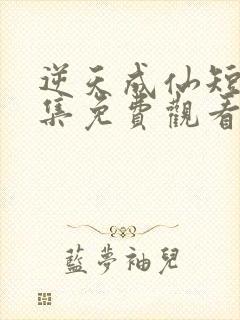 逆天成仙短
集免費觀看
藍夢袖兒